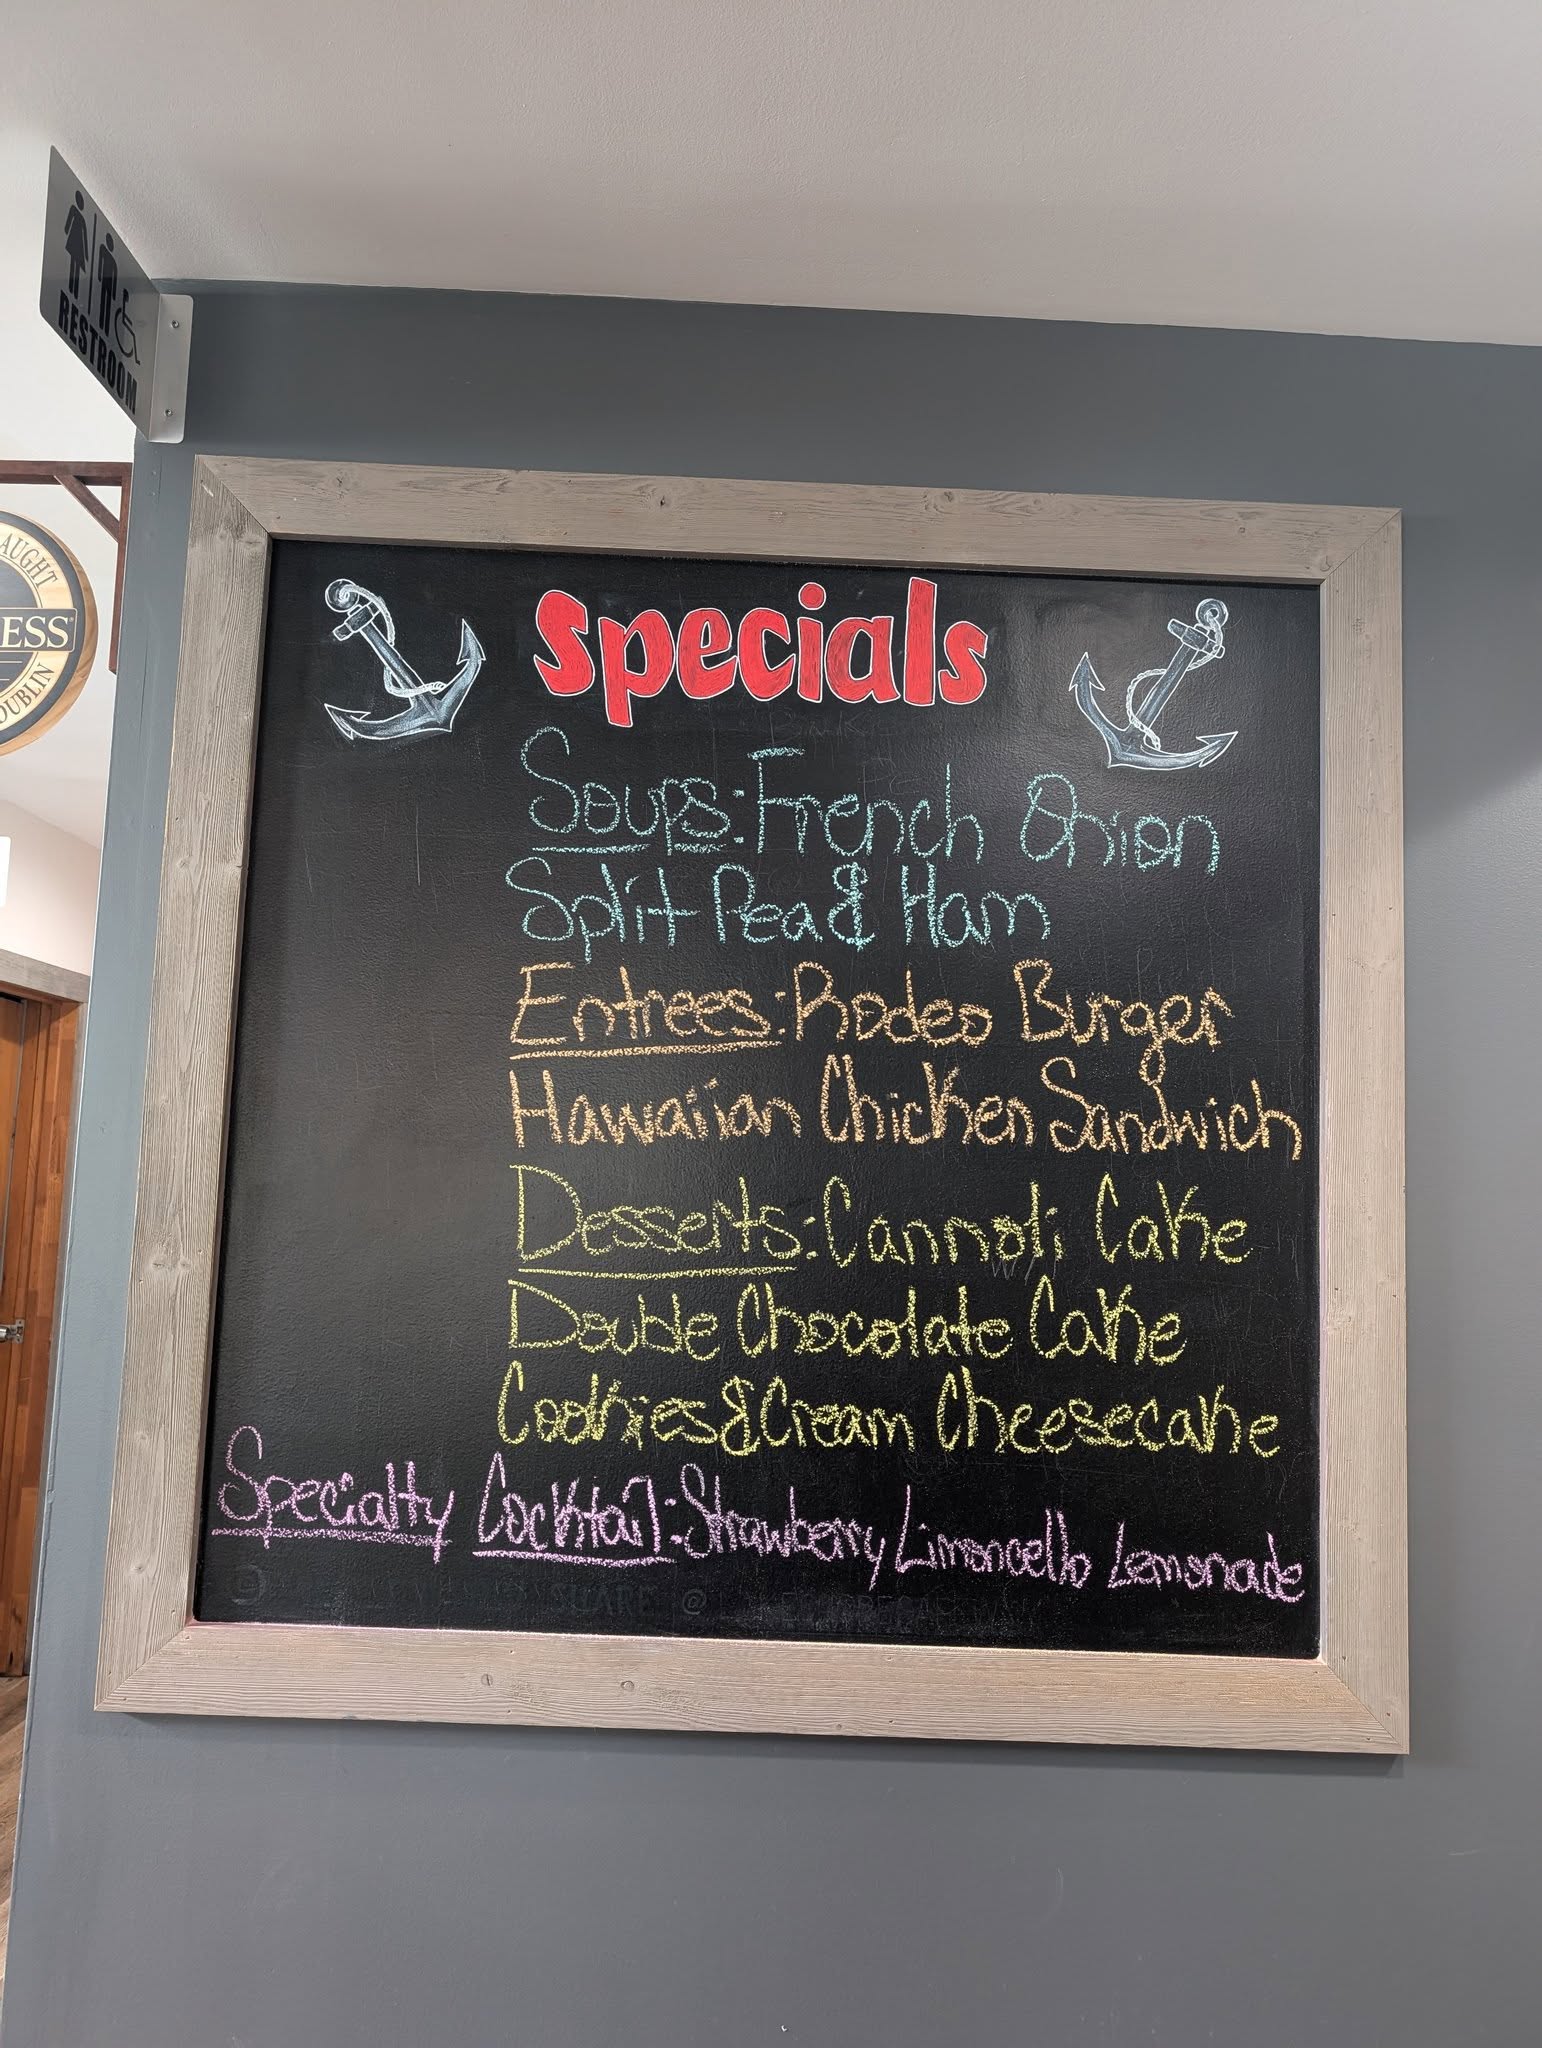 RESTROOM
AUGHT
ESS
DUBLIN
Specials
Soups: French Onion
Split Pea & Ham
Entrees: Rodeo Burger
Hawaiian Chicken Sandwich
Desserts: Cannoli Cake
Double Chocolate Cake
Cookies & Cream Cheesecake
Specialty Cocktail: Strawberry Limoncello Lemonade
SHARE @